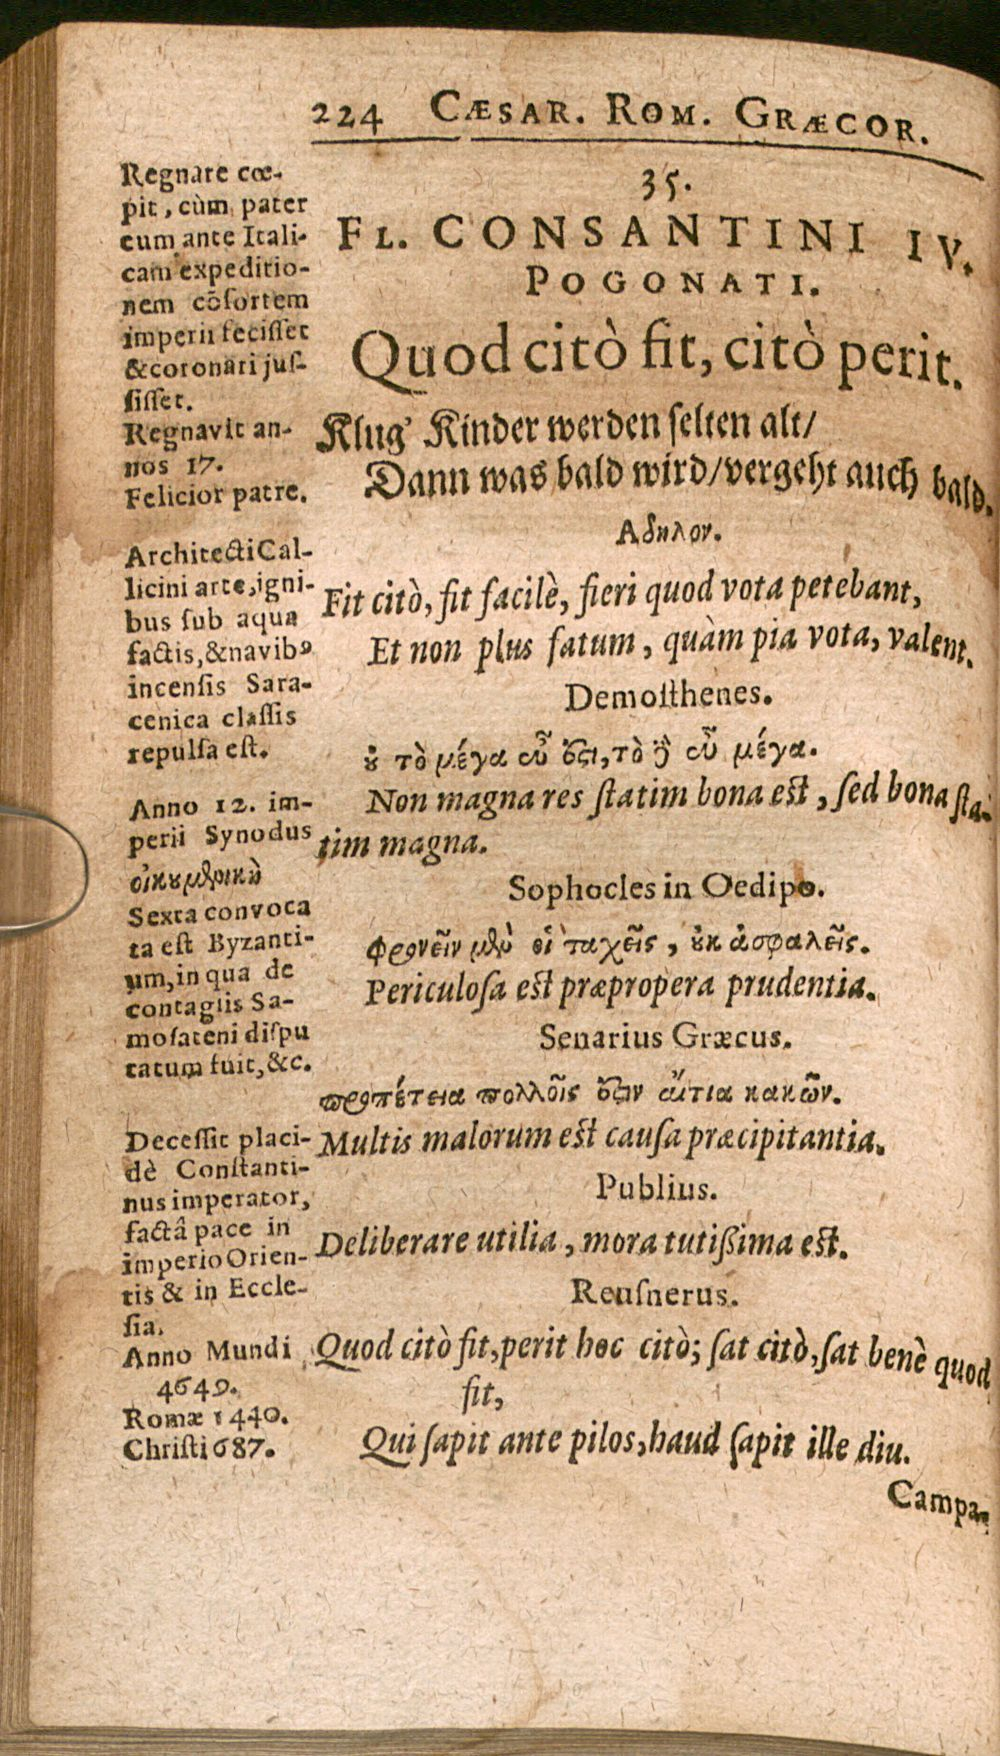 224 CÆSAR. ROM. GRÆCOR.
Regnare cœ-
pit, cùm pater
eum ante Itali-
cam expeditio-
nem cōsortem
imperii fecisset
&coronari jus-
sisset.
Regnavit an-
nos 17.
Felicior patre.
Architecti Cal-
licini arte, igni-
bus sub aqua
factis, &navibꝰ
incensis Sara-
cenica classis
repulsa est.
Anno 12. im-
perii Synodus
οἰκουμενικὴ
Sexta convoca
ta est Byzanti-
um, in qua de
contagiis Sa-
mosateni dispu
tatum fuit, &c.
Decessit placi-
dè Constanti-
nus imperator,
factâ pace in
imperio Orien-
tis & in Eccle-
sia.
Anno Mundi
4649.
Romæ 1440.
Christi 687.
35.
FL. CONSANTINI IV.
POGONATI.
Quod citò fit, citò perit.
Klug' Kinder werden selten alt/
Dann was bald wird/vergeht auch bald.
Αδηλον.
Fit citò, fit facilè, fieri quod vota petebant,
Et non plus fatum, quàm pia vota, valent.
Demosthenes.
οὐ τὸ μέγα εὖ ἐστι, τὸ δὲ εὖ μέγα.
Non magna res statim bona est, sed bona sta-
tim magna.
Sophocles in Oedipo.
φρονεῖν μὲν οἱ ταχεῖς, οὐκ ἀσφαλεῖς.
Periculosa est præpropera prudentia.
Senarius Græcus.
προπέτεια πολλοῖς ἐστιν αἴτια κακῶν.
Multis malorum est causa præcipitantia.
Publius.
Deliberare utilia, mora tutißima est.
Reusnerus.
Quod citò fit, perit hoc citò; sat citò, sat benè quod
fit,
Qui sapit ante pilos, haud sapit ille diu.
Campa-